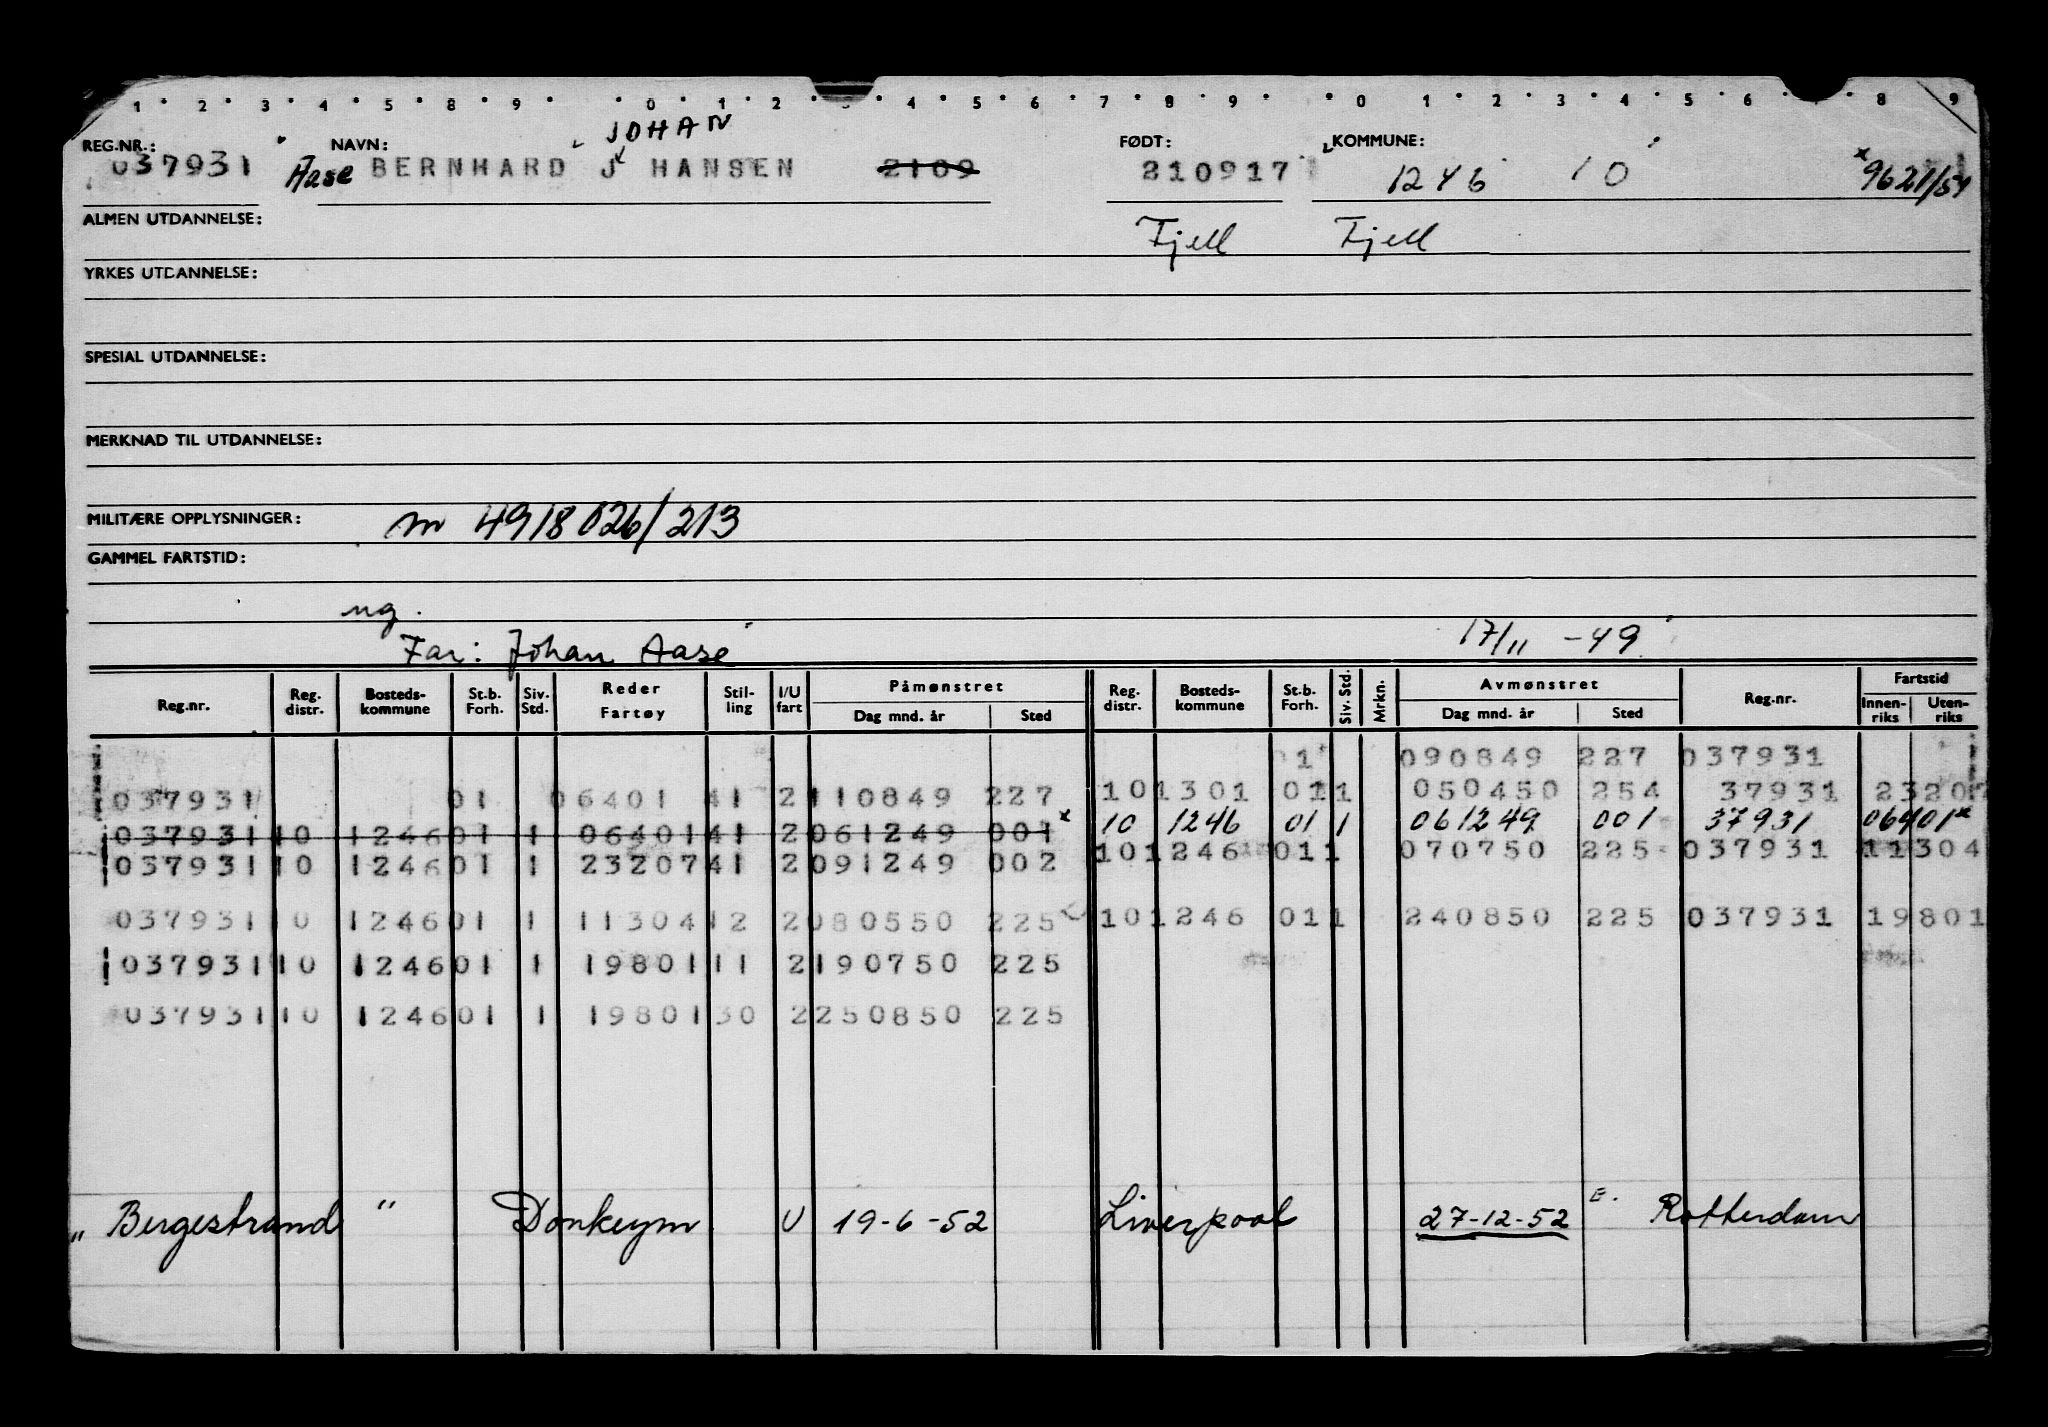 1 2 3 4 5 8 9 0 1 2 4 5 6 7 8 9 0 1 2 3 4 5 6 8 9
JOHAN
REG.NR.: NAVN: FØDT: KOMMUNE:
037931 Aase BERNHARD J HANSEN 2109 210917 1246 10 9621/54
ALMEN UTDANNELSE: Fjell Fjell
YRKES UTDANNELSE:
SPESIAL UTDANNELSE:
MERKNAD TIL UTDANNELSE:
MILITÆRE OPPLYSNINGER: m 4918026/213
GAMMEL FARTSTID:
ug.
Far: Johan Aase 17/11 -49
Reg.nr. Reg. distr. Bosteds- kommune St.b. Forh. Siv. Std. Reder Fartøy Stil- ling I/U fart Påmønstret Dag mnd. år Sted Reg. distr. Bosteds- kommune St.b. Forh. Siv. Std. Mrkn. Avmønstret Dag mnd. år Sted Reg.nr. Fartstid Innen- riks Uten- riks
01 090849 227 037931
037931 01 06401 41 2 110849 227 10 1301 01 1 050450 254 37931 23207
037931 10 1246 01 1 06401 41 2 061249 001 x 10 1246 01 1 061249 001 37931 06401 x
037931 10 1246 01 1 23207 41 2 091249 002 10 1246 01 1 070750 225 037931 11304
037931 10 1246 01 1 11304 12 2 080550 225 10 1246 01 1 240850 225 037931 19801
037931 10 1246 01 1 19801 11 2 190750 225
037931 10 1246 01 1 19801 30 2 250850 225
"Bergestrand" Donkeym U 19-6-52 Liverpool 27-12-52 E. Rotterdam